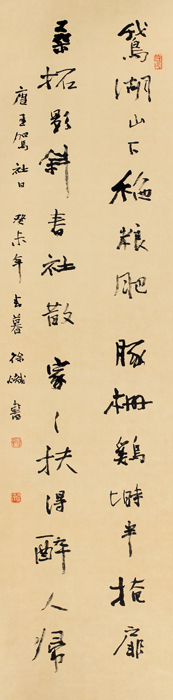 鵞湖山下稻粱肥豚柵鷄塒半掩扉
桑柘影斜春社散家〻扶得醉人歸
唐王駕社日 癸未年 暮 徐 書